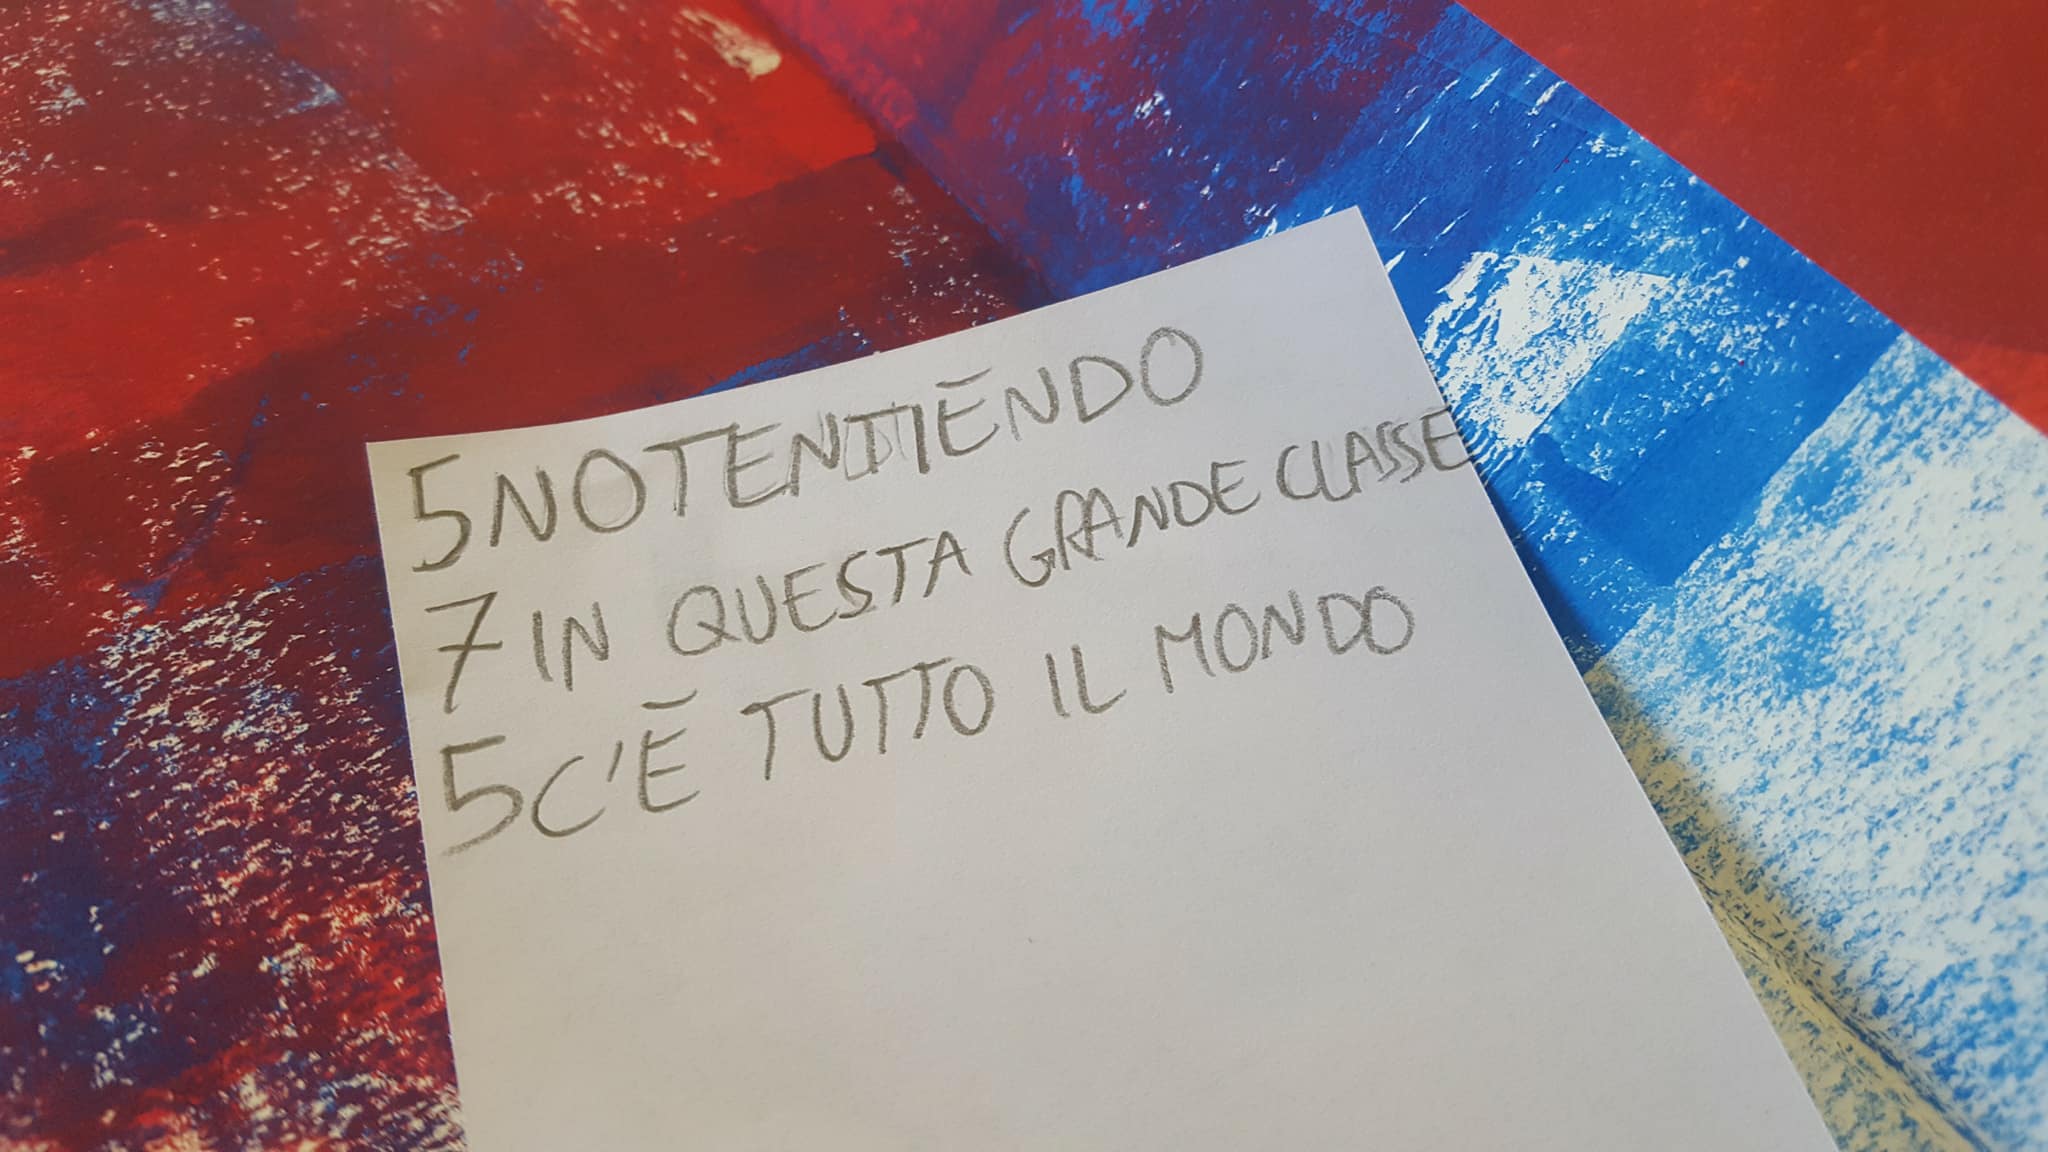 5 NOTENTIENDO
7 IN QUESTA GRANDE CLASSE
5 C'È TUTTO IL MONDO